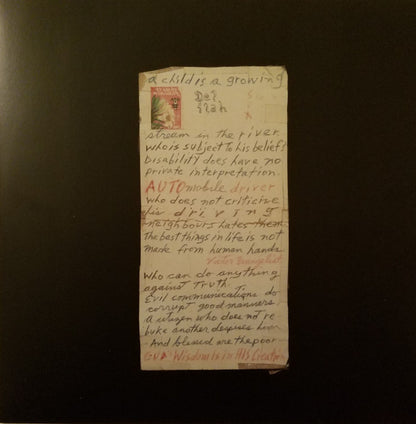 a child is a growing
stream in the river
who is subject to his beliefs
Disability does have no
private interpretation
AUTOmobile driver
who does not criticise
his driving
neighbours hates them
the best things in life is not
made from human hands
Victor Evangelist
who can do anything
against truth
Evil communications do
corrupt good manners
A citizen who does not re
buke another despises him
And blessed are the poor
GOD' Wisdom is in His Creation